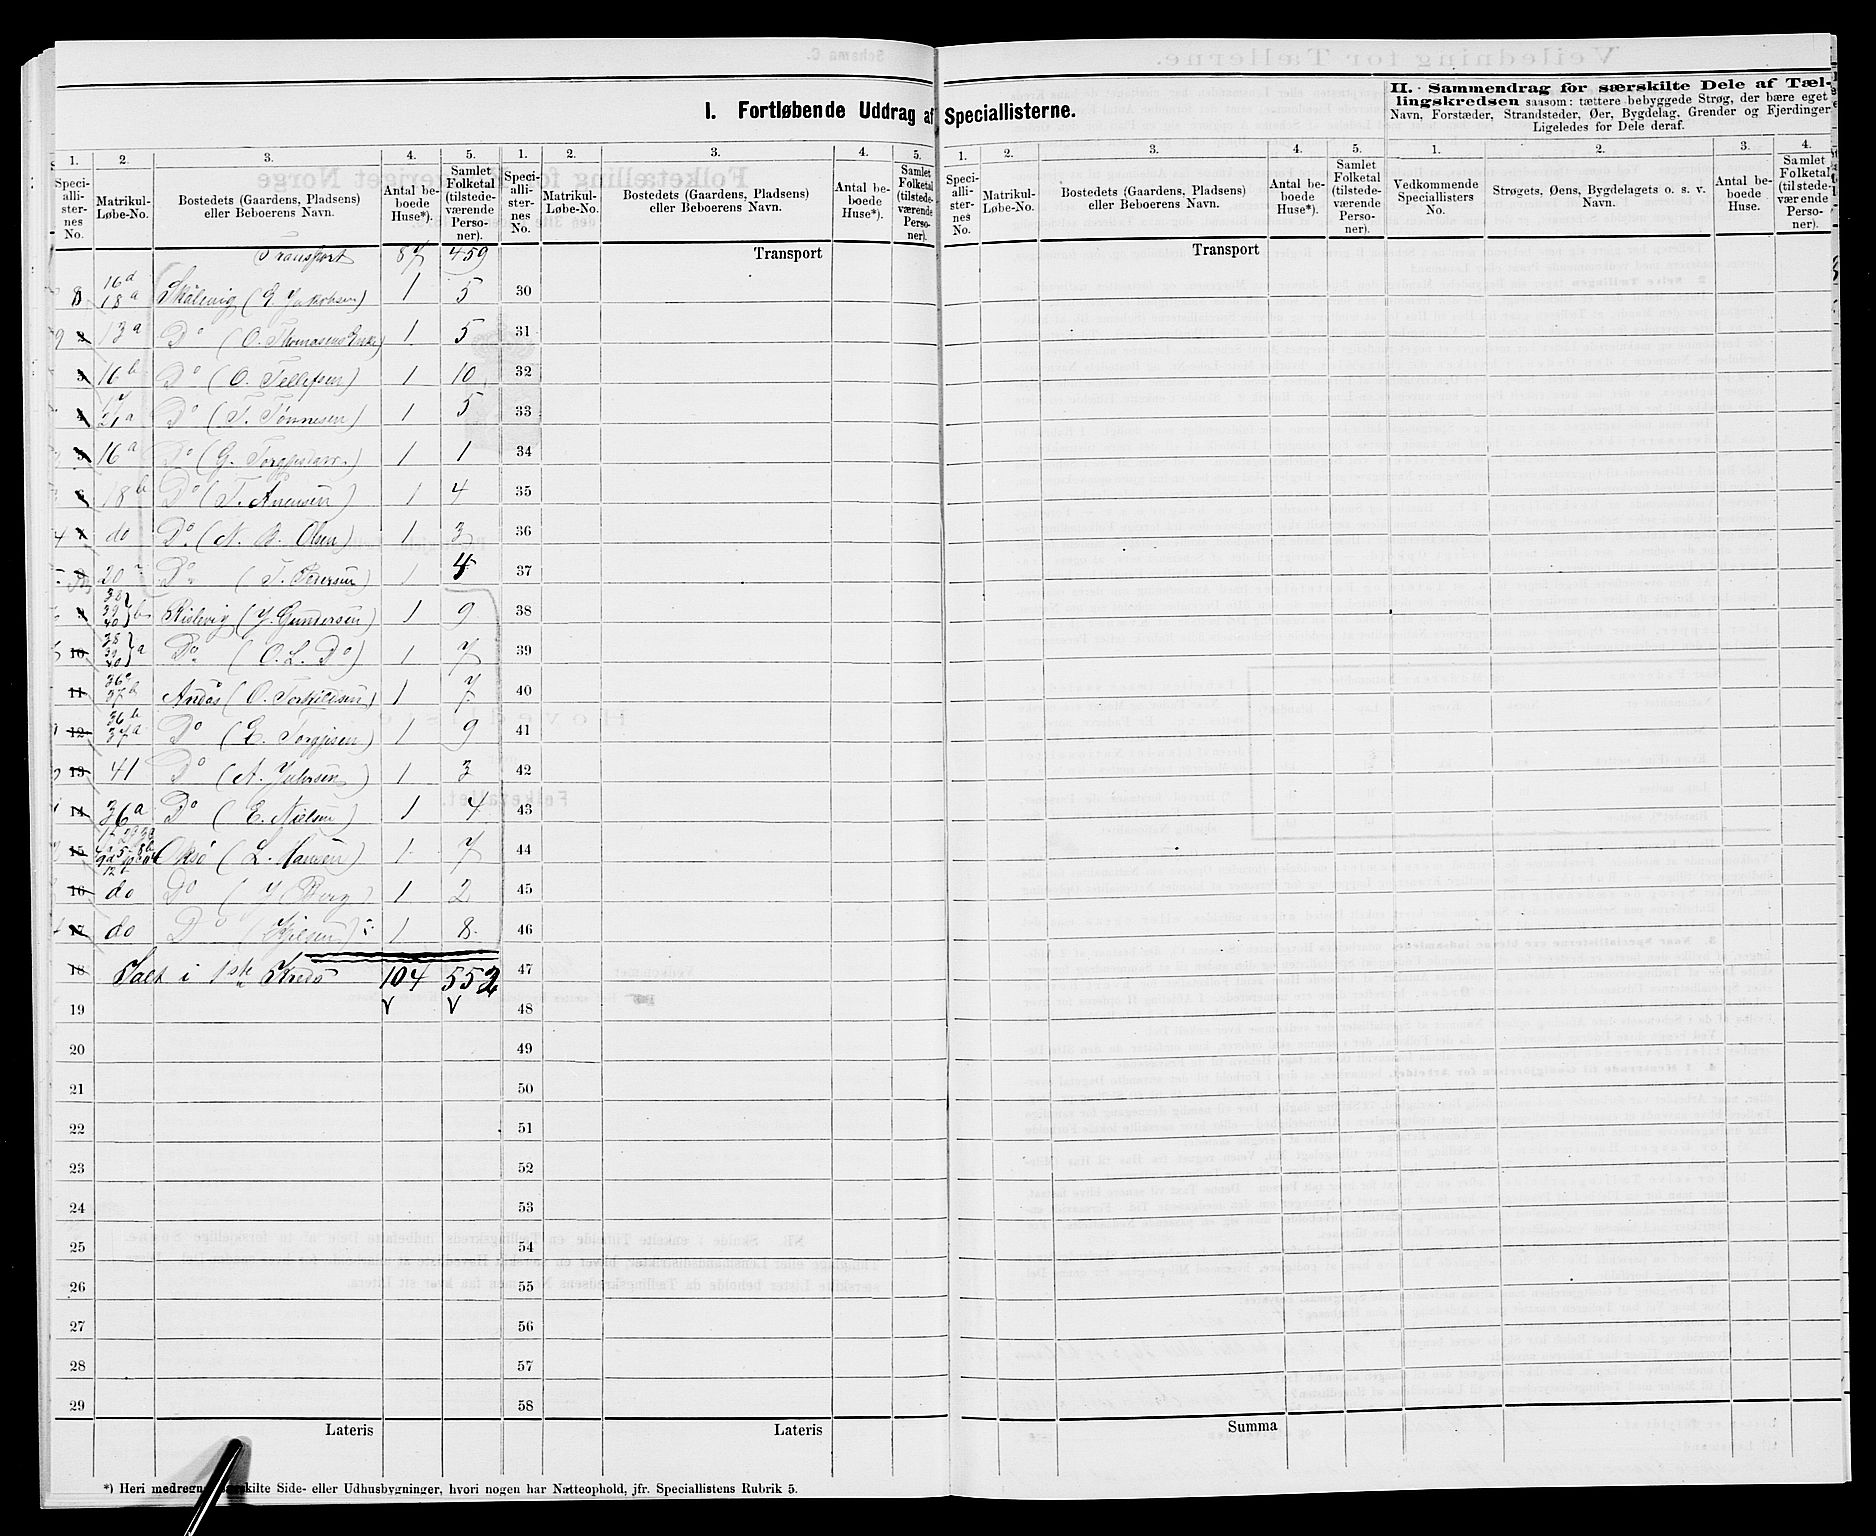 I. Fortløbende Uddrag af Speciallisterne.
II. Sammendrag for særskilte Dele af Tæl-
lingskredsen saasom: tættere bebyggede Strøg, der bære eget
Navn, Forstæder, Strandsteder, Øer, Bygdelag, Grender og Fjerdinger
Ligeledes for Dele deraf.
1. 2. 3. 4. 5. 1. 2. 3. 4. 5. 1. 2. 3. 4. 5. 1. 2. 3. 4.
Speci-
alli-
ster-
nes
No.
Matrikul-
Løbe-No.
Bostedets (Gaardens, Pladsens)
eller Beboerens Navn.
Antal be-
boede
Huse*).
Samlet
Folketal
(tilstede-
værende
Perso-
ner).
Speci-
alli-
ster-
nes
No.
Matrikul-
Løbe-No.
Bostedets (Gaardens, Pladsens)
eller Beboerens Navn.
Antal be-
boede
Huse*).
Samlet
Folketal
(tilstede-
værende
Perso-
ner).
Speci-
alli-
ster-
nes
No.
Matrikul-
Løbe-No.
Bostedets (Gaardens, Pladsens)
eller Beboerens Navn.
Antal be-
boede
Huse*).
Samlet
Folketal
(tilstede-
værende
Perso-
ner).
Vedkommende
Speciallisters
No.
Strøgets, Øens, Bygdelagets o. s. v.
Navn.
Antal
beboede
Huse.
Samlet
Folketal
(tilstede-
værende
Perso-
ner).
Transport 87 459 Transport Transport
16d
18a Skålevig (G. Jakobsen) 1 5 30
13a Do (O. Thomasens Enke) 1 5 31
3 16b Do (O. Tellefsen) 1 10 32
4 17
21a Do (T. Tønnesen) 1 5 33
5 16a Do (G. Torgjusdatr.) 1 1 34
6 18b Do (T. Knudsen) 1 4 35
do Do (N. B. Olsen) 1 3 36
20 Do (T. Pedersen) 1 4 37
38
39
40 } b Kislevig (J. Gundersen) 1 9 38
10 38
39
40 } a Do (O. L. Do) 1 7 39
11 36
37b Andås (O. Torkildsen) 1 7 40
12 36b
37a Do (E. Torgjusen) 1 9 41
13 41 Do (A. ) 1 3 42
14 36a Do (E. Nielsen) 1 4 43
15 Oksö (L. Hansen) 1 7 44
16 do Do (J. Berg) 1 2 45
17 do Do 1 8 46
18 Talt i 1ste Kreds 104 552 47
19 48
20 49
21 50
22 51
23 52
24 53
25 54
26 55
27 56
28 57
29 58
Lateris Lateris Summa
*) Heri medregnes særskilte Side- eller Udhusbygninger, hvori nogen har Natteophold, jfr. Speciallistens Rubrik 5.